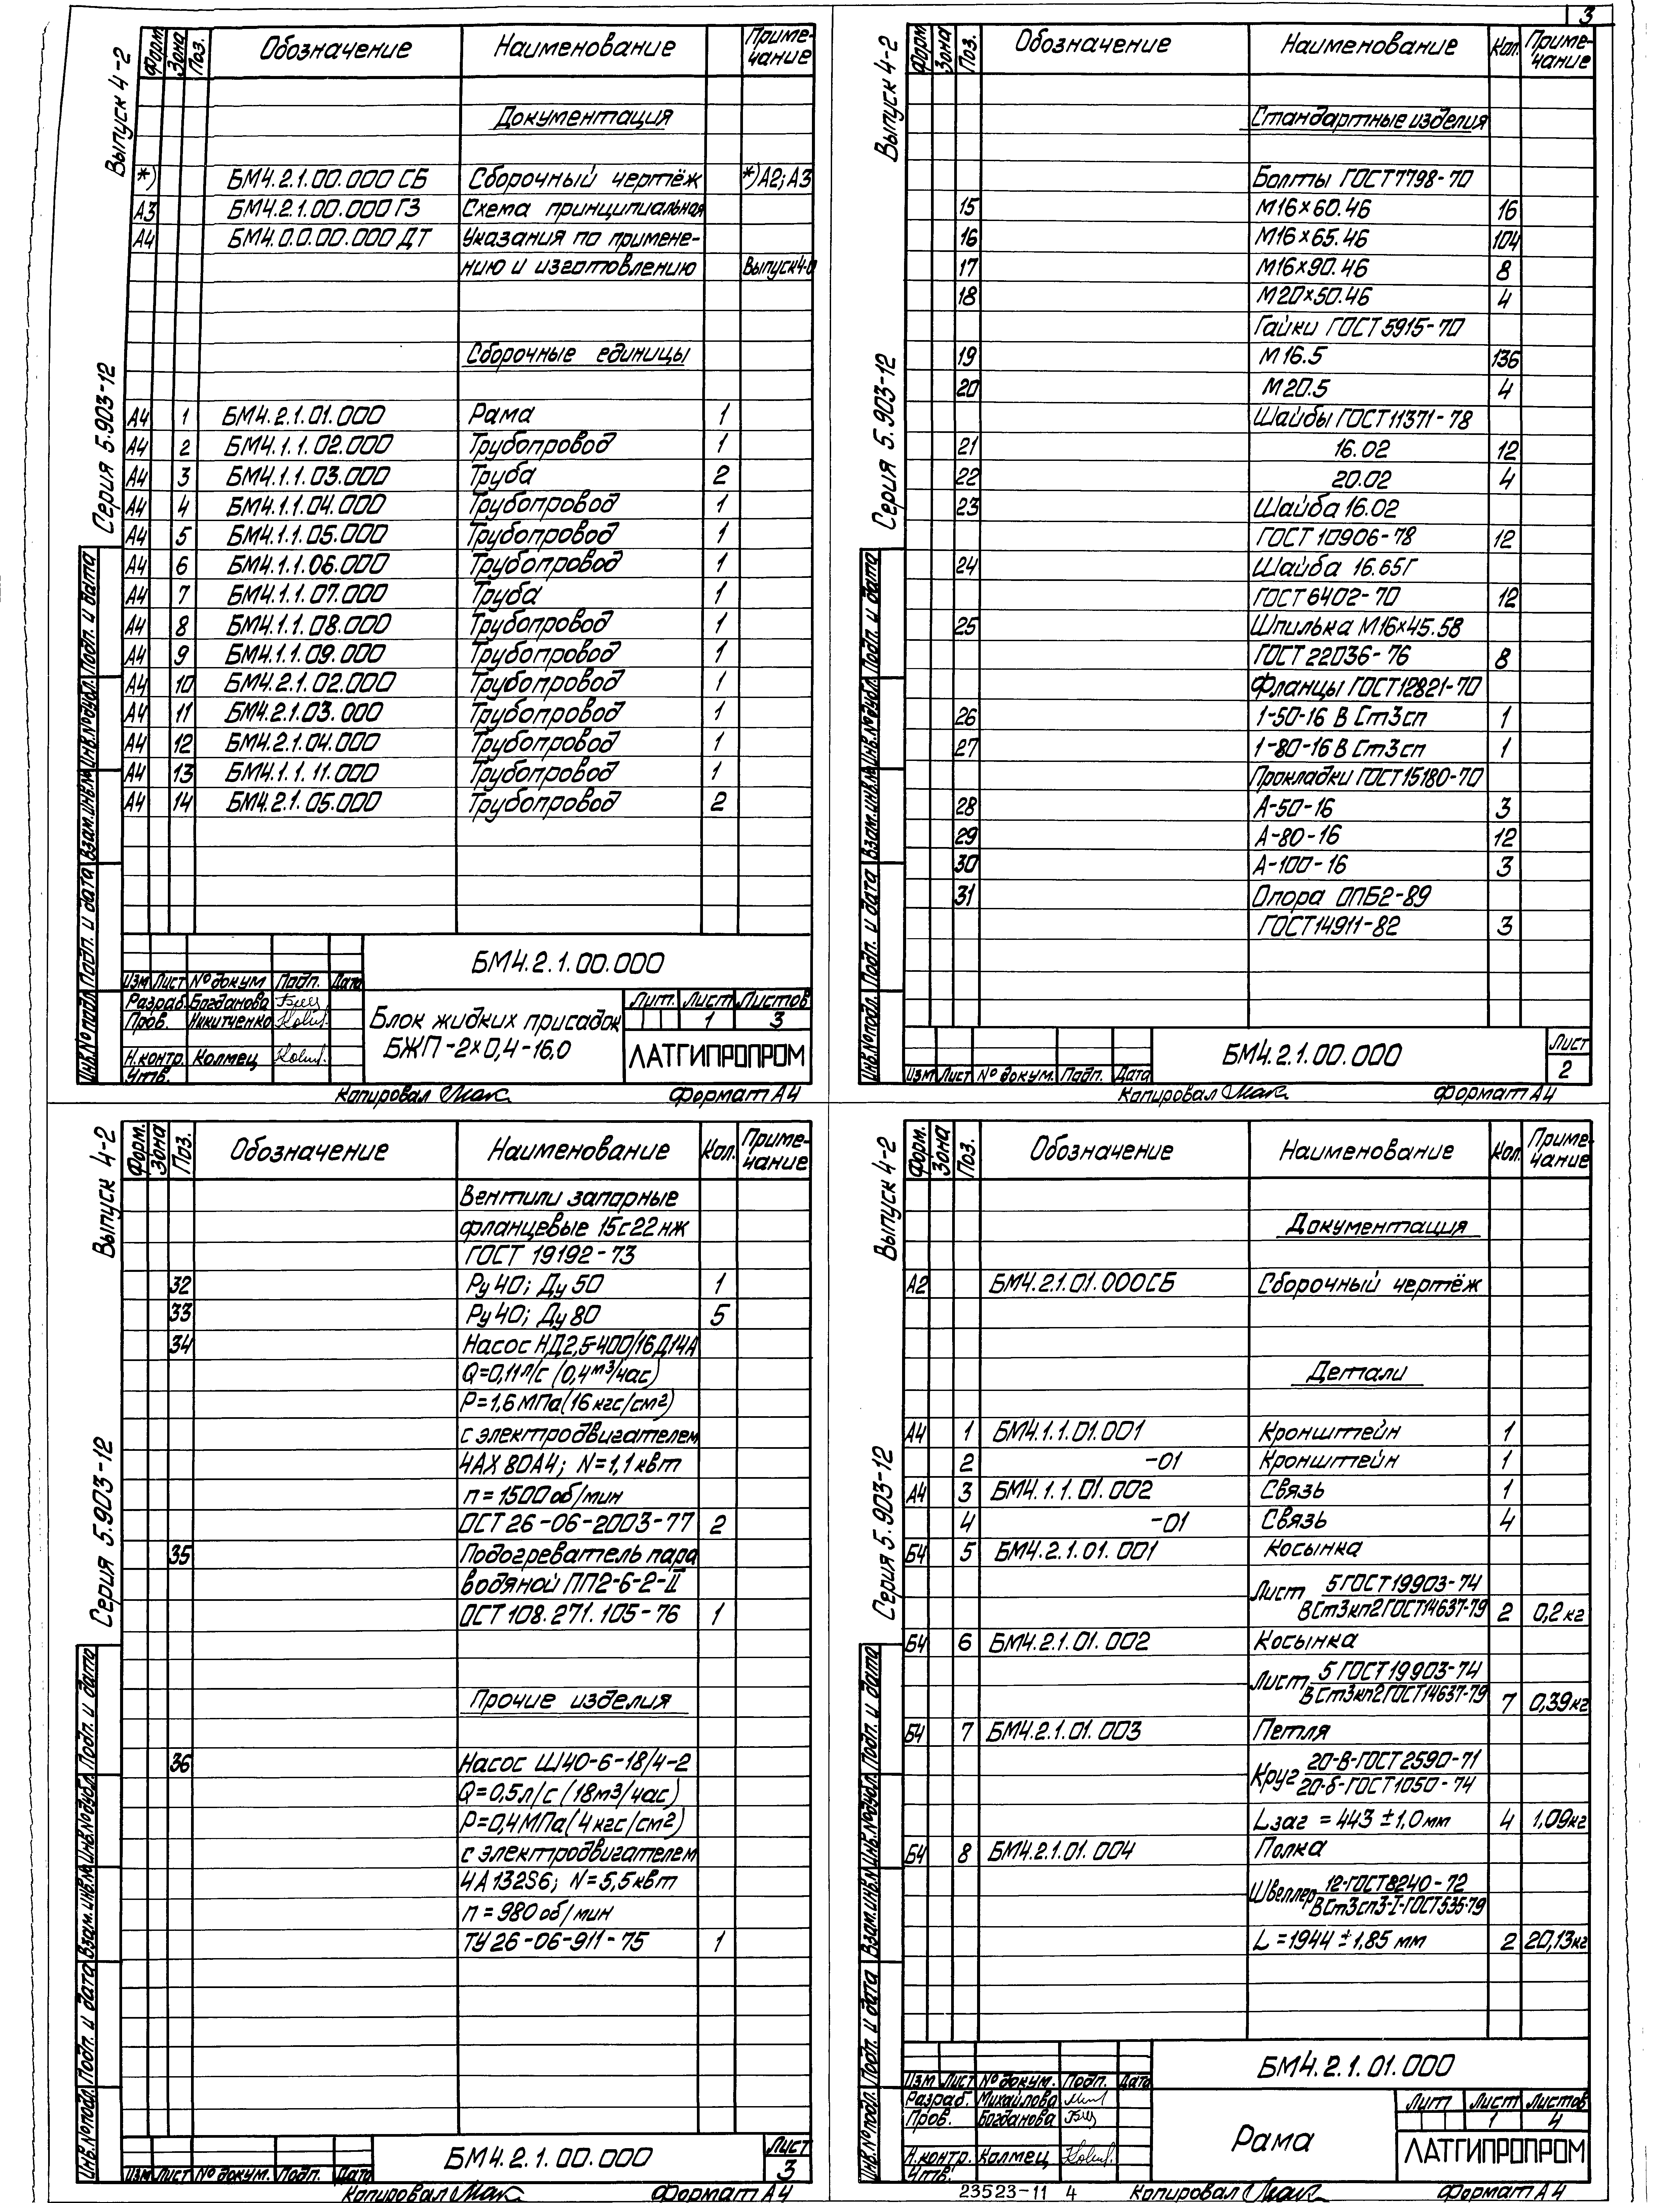 3
Выпуск 4-2
Серия 5.903-12
Форм. Зона Поз. Обозначение Наименование Приме-
чание
Документация
*) БМ4.2.1.00.000 СБ Сборочный чертёж *) А2; А3
А3 БМ4.2.1.00.000 Г3 Схема принципиальная
А4 БМ4.0.0.00.000 ДТ Указания по примене-
нию и изготовлению Выпуск 4-0
Сборочные единицы
А4 1 БМ4.2.1.01.000 Рама 1
А4 2 БМ4.1.1.02.000 Трубопровод 1
А4 3 БМ4.1.1.03.000 Труба 2
А4 4 БМ4.1.1.04.000 Трубопровод 1
А4 5 БМ4.1.1.05.000 Трубопровод 1
А4 6 БМ4.1.1.06.000 Трубопровод 1
А4 7 БМ4.1.1.07.000 Труба 1
А4 8 БМ4.1.1.08.000 Трубопровод 1
А4 9 БМ4.1.1.09.000 Трубопровод 1
А4 10 БМ4.2.1.02.000 Трубопровод 1
А4 11 БМ4.2.1.03.000 Трубопровод 1
А4 12 БМ4.2.1.04.000 Трубопровод 1
А4 13 БМ4.1.1.11.000 Трубопровод 1
А4 14 БМ4.2.1.05.000 Трубопровод 2
Инв.№подл. Подп. и дата Взам.инв.№ Инв.№дубл. Подп. и дата
БМ4.2.1.00.000
Изм Лист № докум Подп. Дата
Разраб. Богданова
Пров. Никитченко
Н.контр. Колмец
Утв.
Блок жидких присадок
БЖП-2×0,4-16,0
Лит. Лист Листов
1 3
ЛАТГИПРОПРОМ
Копировал Формат А4
Выпуск 4-2
Серия 5.903-12
Форм. Зона Поз. Обозначение Наименование Кол. Приме-
чание
Стандартные изделия
Болты ГОСТ 7798-70
15 М16×60.46 16
16 М16×65.46 104
17 М16×90.46 8
18 М20×50.46 4
Гайки ГОСТ 5915-70
19 М16.5 136
20 М20.5 4
Шайбы ГОСТ 11371-78
21 16.02 12
22 20.02 4
23 Шайба 16.02
ГОСТ 10906-78 12
24 Шайба 16.65Г
ГОСТ 6402-70 12
25 Шпилька М16×45.58
ГОСТ 22036-76 8
Фланцы ГОСТ 12821-70
26 1-50-16 В Ст3сп 1
27 1-80-16 В Ст3сп 1
Прокладки ГОСТ 15180-70
28 А-50-16 3
29 А-80-16 12
30 А-100-16 3
31 Опора ОПБ2-89
ГОСТ 14911-82 3
Инв.№подл. Подп. и дата Взам.инв.№ Инв.№дубл. Подп. и дата
Изм Лист № докум. Подп. Дата
БМ4.2.1.00.000
Лист
2
Копировал Формат А4
Выпуск 4-2
Серия 5.903-12
Форм. Зона Поз. Обозначение Наименование Кол. Приме-
чание
Вентили запорные
фланцевые 15с22нж
ГОСТ 19192-73
32 Ру 40; Ду 50 1
33 Ру 40; Ду 80 5
34 Насос НД2,5-400/16Д14А
Q=0,11л/с (0,4м³/час)
Р=1,6МПа (16кгс/см²)
с электродвигателем
4АХ80А4; N=1,1квт
п=1500об/мин
ОСТ 26-06-2003-77 2
35 Подогреватель паро
водяной ПП2-6-2-II
ОСТ 108.271.105-76 1
Прочие изделия
36 Насос Ш40-6-18/4-2
Q=0,5л/с (18м³/час)
Р=0,4МПа (4кгс/см²)
с электродвигателем
4А132S6; N=5,5квт
п=980об/мин
ТУ 26-06-911-75 1
Инв.№подл. Подп. и дата Взам.инв.№ Инв.№дубл. Подп. и дата
Изм Лист № докум. Подп. Дата
БМ4.2.1.00.000
Лист
3
Копировал Формат А4
Выпуск 4-2
Серия 5.903-12
Форм. Зона Поз. Обозначение Наименование Кол. Приме-
чание
Документация
А2 БМ4.2.1.01.000СБ Сборочный чертёж
Детали
А4 1 БМ4.1.1.01.001 Кронштейн 1
2 -01 Кронштейн 1
А4 3 БМ4.1.1.01.002 Связь 1
4 -01 Связь 4
Б4 5 БМ4.2.1.01.001 Косынка
Лист 5 ГОСТ 19903-74
ВСт3кп2 ГОСТ 14637-79 2 0,2кг
Б4 6 БМ4.2.1.01.002 Косынка
Лист 5 ГОСТ 19903-74
ВСт3кп2 ГОСТ 14637-79 7 0,39кг
Б4 7 БМ4.2.1.01.003 Петля
Круг 20-В-ГОСТ 2590-71
20-б-ГОСТ 1050-74
Lзаг = 443±1,0мм 4 1,09кг
Б4 8 БМ4.2.1.01.004 Полка
Швеллер 12-ГОСТ 8240-72
ВСт3сп3-I-ГОСТ 535-79
L=1944±1,85 мм 2 20,13кг
Инв.№подл. Подп. и дата Взам.инв.№ Инв.№дубл. Подп. и дата
БМ4.2.1.01.000
Изм Лист № докум. Подп. Дата
Разраб. Михайлова
Пров. Богданова
Н.контр. Колмец
Утв.
Рама
Лит Лист Листов
1 4
ЛАТГИПРОПРОМ
23523-11 4 Копировал Формат А4